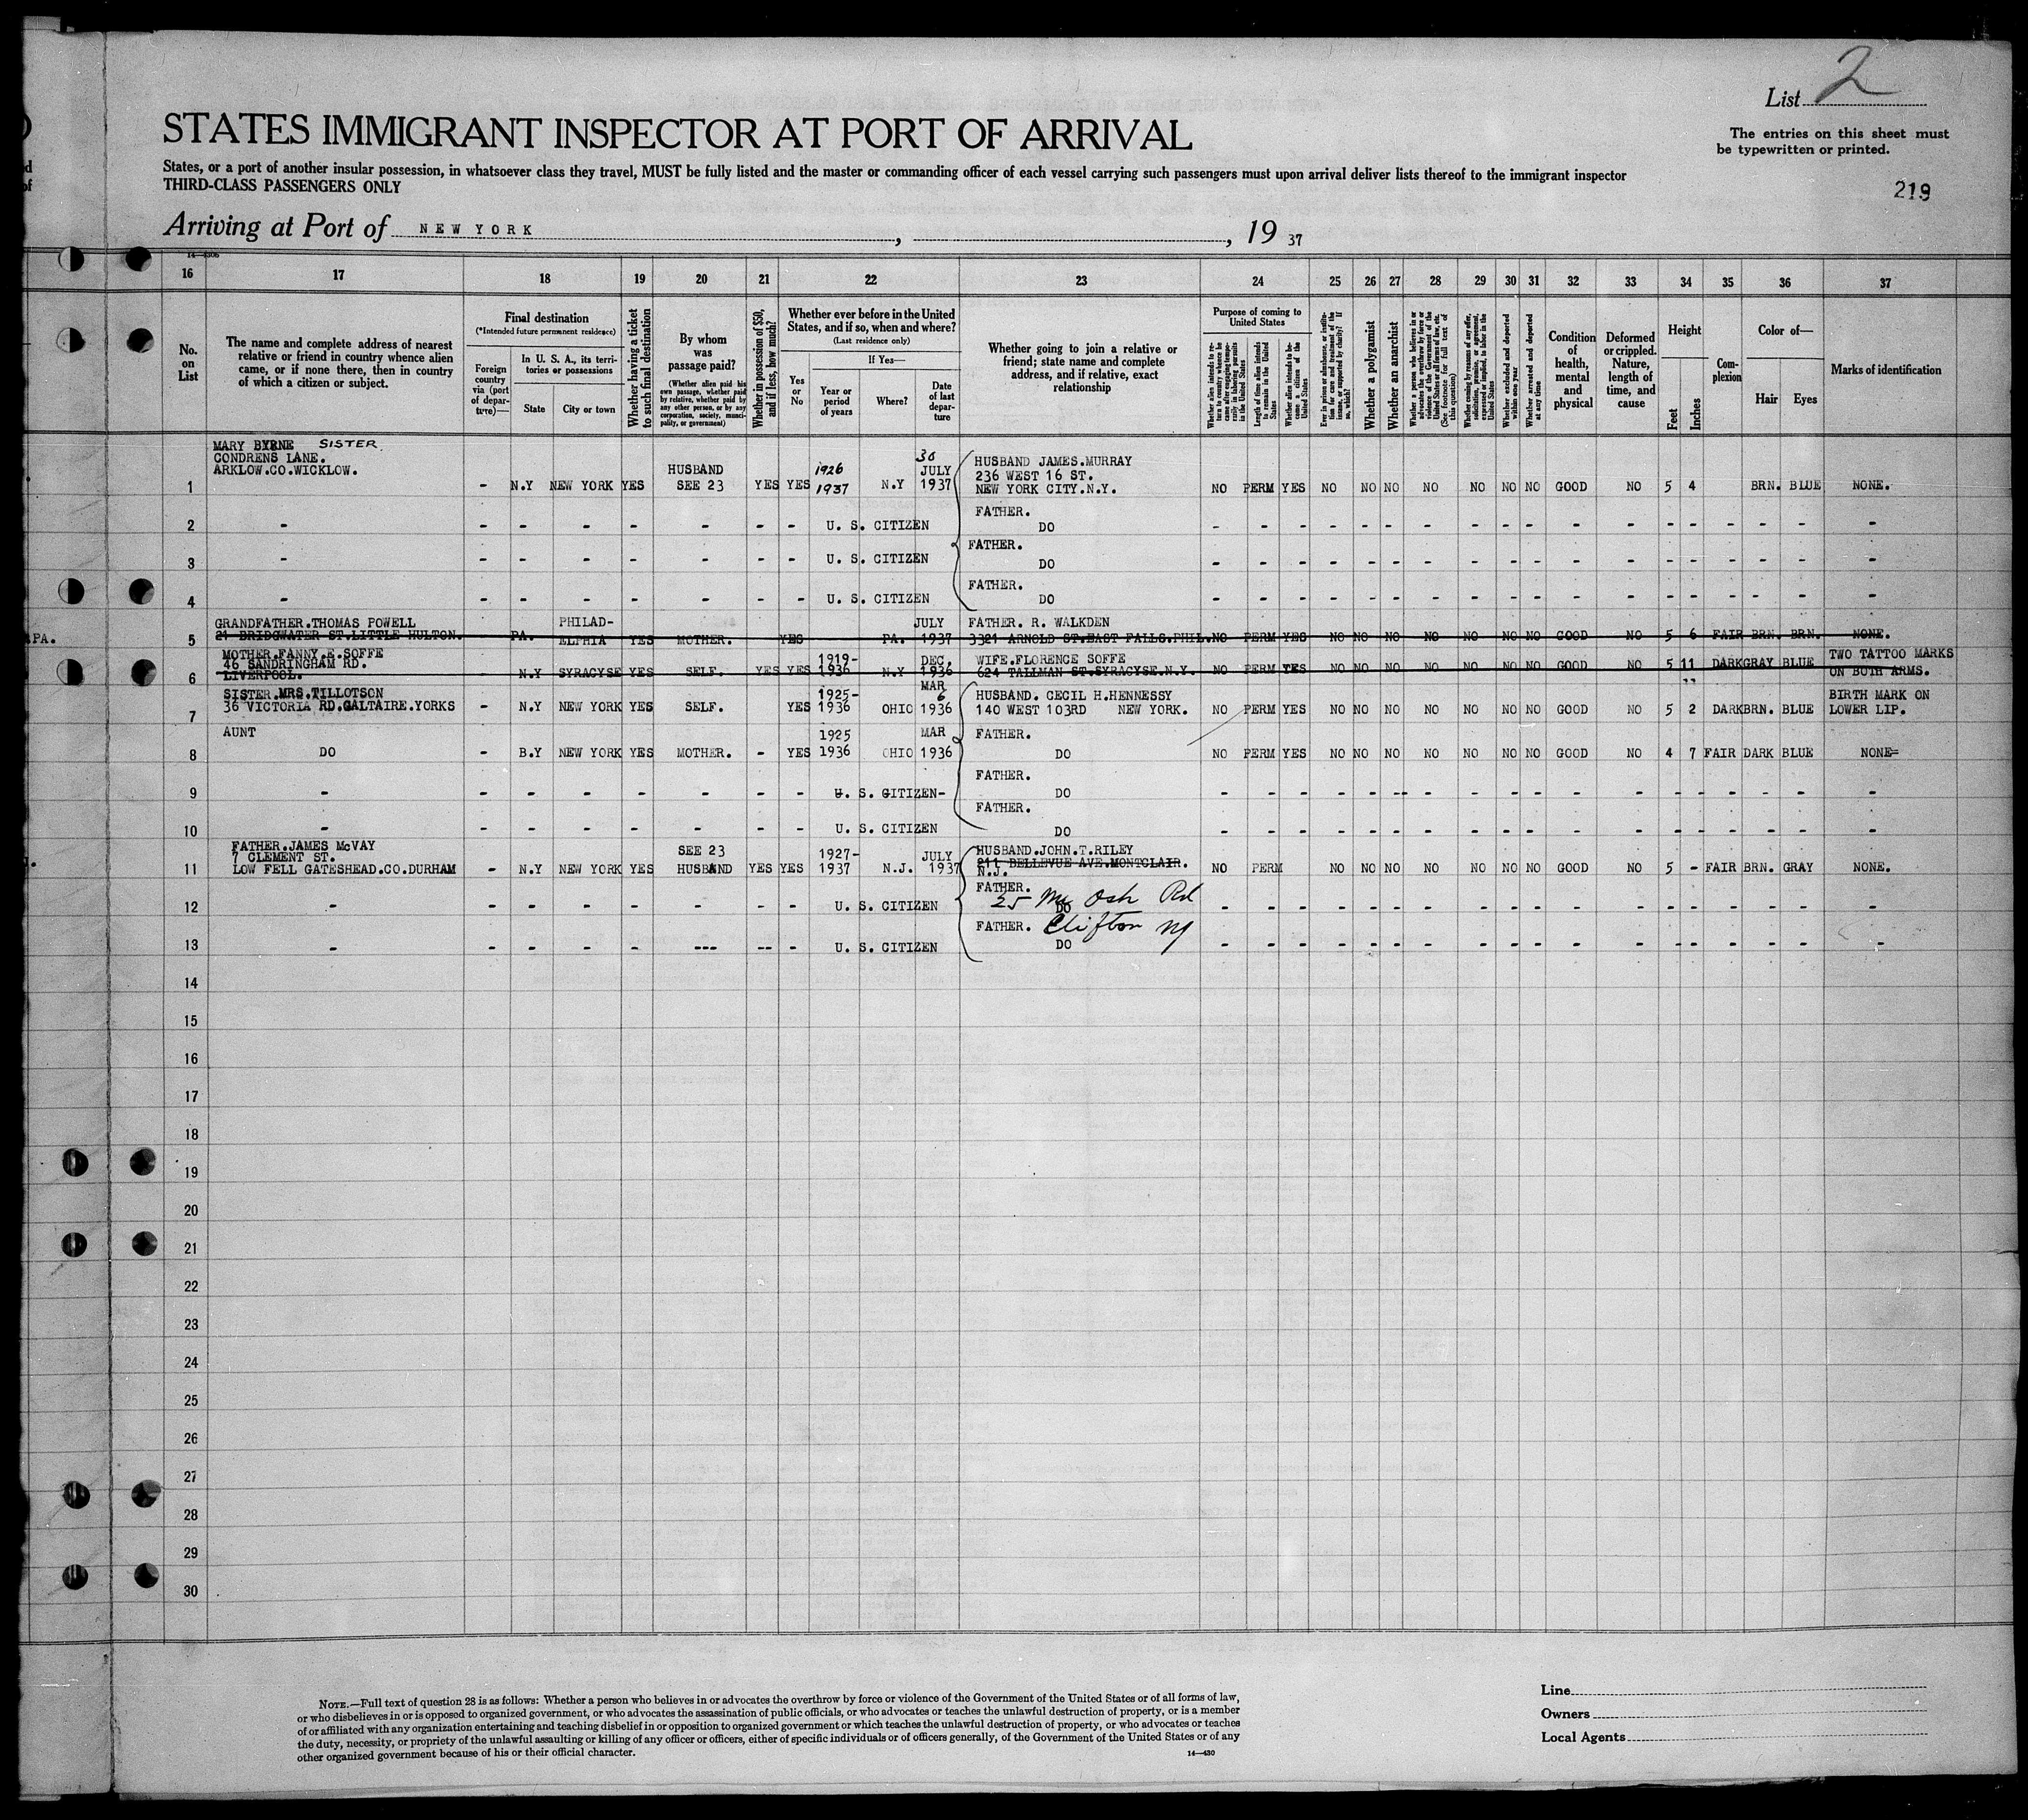 List 2
STATES IMMIGRANT INSPECTOR AT PORT OF ARRIVAL
The entries on this sheet must
be typewritten or printed.
States, or a port of another insular possession, in whatsoever class they travel, MUST be fully listed and the master or commanding officer of each vessel carrying such passengers must upon arrival deliver lists thereof to the immigrant inspector
THIRD-CLASS PASSENGERS ONLY
219
Arriving at Port of NEW YORK , , 19 37
16 17 18 19 20 21 22 23 24 25 26 27 28 29 30 31 32 33 34 35 36 37
No. on List
The name and complete address of nearest relative or friend in country whence alien came, or if none there, then in country of which a citizen or subject.
Final destination
(*Intended future permanent residence)
Foreign country via (port of departure)—
In U. S. A., its territories or possessions
State
City or town
Whether having a ticket to such final destination
By whom was passage paid?
(Whether alien paid his own passage, whether paid by relative, whether paid by any other person, or by any corporation, society, municipality, or government)
Whether in possession of $50, and if less, how much?
Whether ever before in the United States, and if so, when and where?
(Last residence only)
Yes or No
If Yes—
Year or period of years
Where?
Date of last departure
Whether going to join a relative or friend; state name and complete address, and if relative, exact relationship
Purpose of coming to United States
Whether alien intends to return to country whence he came after engaging temporarily in laboring pursuits in the United States
Length of time alien intends to remain in the United States
Whether alien intends to become a citizen of the United States
Ever in prison or almshouse, or institution for care and treatment of the insane, or supported by charity? If so, which?
Whether a polygamist
Whether an anarchist
Whether a person who believes in or advocates the overthrow by force or violence of the Government of the United States or all forms of law, etc. (See footnote for full text of this question)
Whether coming by reasons of any offer, solicitation, promise, or agreement, expressed or implied, to labor in the United States
Whether excluded and deported within one year
Whether arrested and deported at any time
Condition of health, mental and physical
Deformed or crippled. Nature, length of time, and cause
Height
Feet
Inches
Complexion
Color of—
Hair
Eyes
Marks of identification
MARY BYRNE SISTER
CONDRENS LANE.
ARKLOW.CO.WICKLOW.
1 - N.Y NEW YORK YES HUSBAND SEE 23 YES YES 1926 1937 N.Y 30 JULY 1937 HUSBAND JAMES.MURRAY
236 WEST 16 ST.
NEW YORK CITY.N.Y. NO PERM YES NO NO NO NO NO NO NO GOOD NO 5 4 BRN. BLUE NONE.
2 - - - - - - - - U. S. CITIZEN FATHER. DO - - - - - - - - - - - - - - - - - -
3 - - - - - - - - U. S. CITIZEN FATHER. DO - - - - - - - - - - - - - - - - - -
4 - - - - - - - - U. S. CITIZEN FATHER. DO - - - - - - - - - - - - - - - - - -
PA.
GRANDFATHER.THOMAS POWELL
5 21 BRIDGWATER ST.LITTLE HULTON. PA. PHILAD-ELPHIA YES MOTHER. YES PA. JULY 1937 FATHER. R. WALKDEN
3321 ARNOLD ST.EAST FALLS.PHIL. NO PERM YES NO NO NO NO NO NO NO GOOD NO 5 6 FAIR BRN. BRN. NONE.
MOTHER.FANNY.E.SOFFE
46 SANDRINGHAM RD.
6 LIVERPOOL. N.Y SYRACYSE YES SELF. YES YES 1919-1936 N.Y DEC. 1936 WIFE.FLORENCE SOFFE
624 TALLMAN ST.SYRACYSE.N.Y. NO PERM YES NO NO NO NO NO NO NO GOOD NO 5 11 DARK GRAY BLUE TWO TATTOO MARKS
ON BOTH ARMS.
SISTER.MRS.TILLOTSON
7 36 VICTORIA RD.GALTAIRE.YORKS - N.Y NEW YORK YES SELF. YES 1925-1936 OHIO MAR 6 1936 HUSBAND. CECIL H.HENNESSY
140 WEST 103RD NEW YORK. NO PERM YES NO NO NO NO NO NO NO GOOD NO 5 2 DARK BRN. BLUE BIRTH MARK ON
LOWER LIP.
AUNT
8 DO - B.Y NEW YORK YES MOTHER. - YES 1925 1936 OHIO MAR 1936 FATHER. DO NO PERM YES NO NO NO NO NO NO NO GOOD NO 4 7 FAIR DARK BLUE NONE
9 - - - - - - - - U. S. CITIZEN- FATHER. DO - - - - - - - - - - - - - - - - - -
10 - - - - - - - - U. S. CITIZEN FATHER. DO - - - - - - - - - - - - - - - - - -
FATHER.JAMES McVAY
7 CLEMENT ST.
11 LOW FELL GATESHEAD.CO.DURHAM - N.Y NEW YORK YES SEE 23 HUSBAND YES YES 1927-1937 N.J. JULY 1937 HUSBAND.JOHN.T.RILEY
211 BELLEVUE AVE.MONTCLAIR.
N.J. NO PERM NO NO NO NO NO NO NO GOOD NO 5 - FAIR BRN. GRAY NONE.
12 - - - - - - - - U. S. CITIZEN FATHER. DO 25 Mc Osh Rd - - - - - - - - - - - - - - - - - -
13 - - - - - --- -- - U. S. CITIZEN FATHER. DO Clifton NJ - - - - - - - - - - - - - - - - - -
14
15
16
17
18
19
20
21
22
23
24
25
26
27
28
29
30
NOTE.—Full text of question 28 is as follows: Whether a person who believes in or advocates the overthrow by force or violence of the Government of the United States or of all forms of law,
or who disbelieves in or is opposed to organized government, or who advocates the assassination of public officials, or who advocates or teaches the unlawful destruction of property, or is a member
of or affiliated with any organization entertaining and teaching disbelief in or opposition to organized government or which teaches the unlawful destruction of property, or who advocates or teaches
the duty, necessity, or propriety of the unlawful assaulting or killing of any officer or officers, either of specific individuals or of officers generally, of the Government of the United States or of any
other organized government because of his or their official character.
14—430
Line
Owners
Local Agents